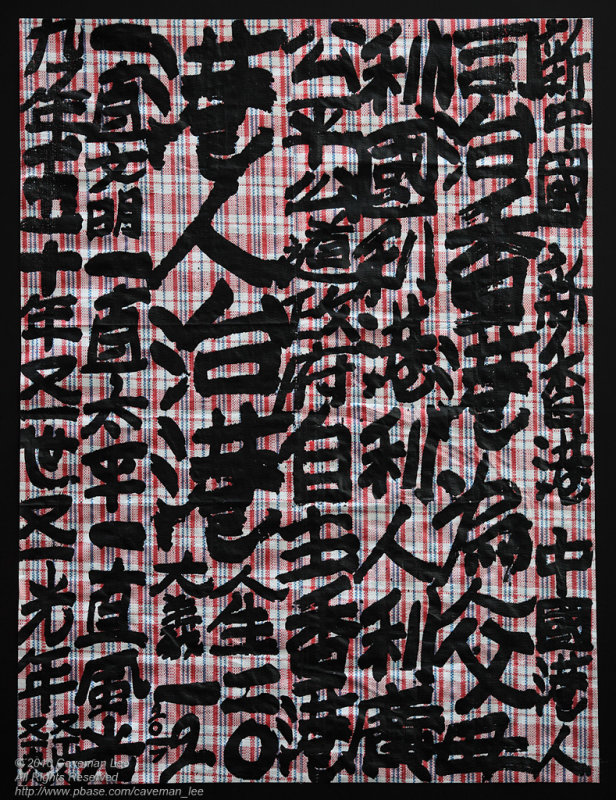 新中國 新香港 中國港人
信治香港為父母
利國利港利人利廣
公平公道政府自主香港
港人治港
人生二〇
大義一九
一直文明一直太平一直風光
九七年五十年又世又一光年
© 2018 Caveman Lee
All Rights Reserved
http://www.pbase.com/caveman_lee